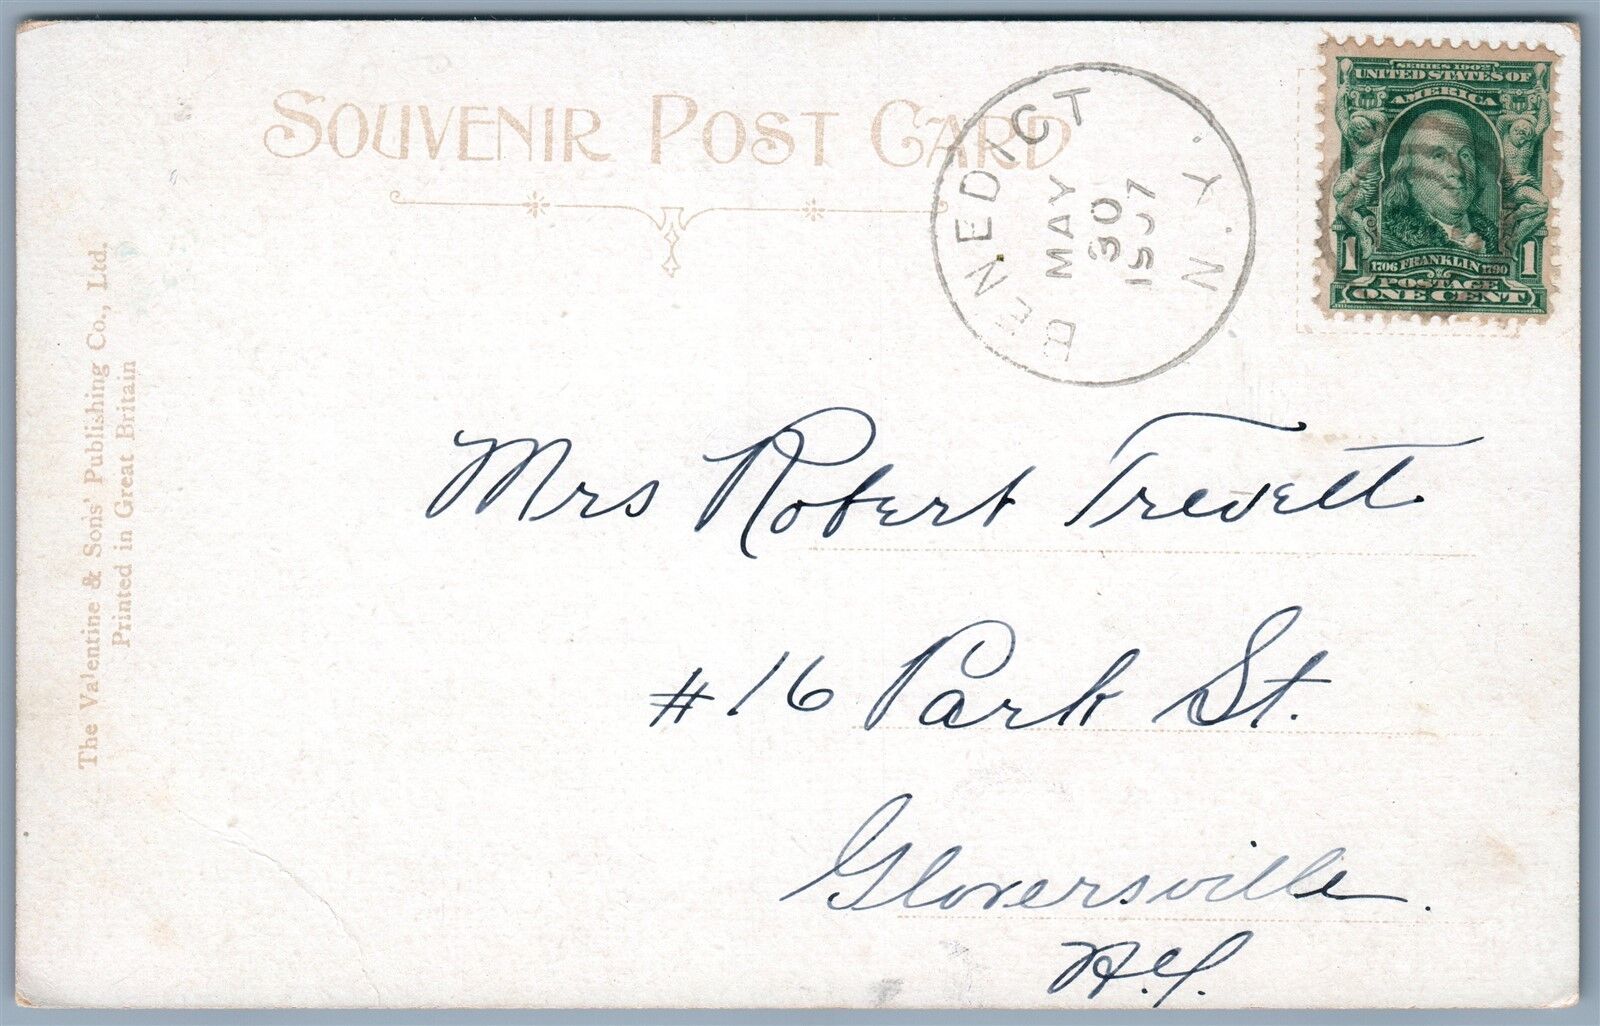 SOUVENIR POST CARD
BENEDICT N.Y.
MAY
30
1907
SERIES 1902
UNITED STATES OF
AMERICA
1 1706 FRANKLIN 1790 1
POSTAGE
ONE CENT
The Valentine & Sons' Publishing Co., Ltd.
Printed in Great Britain
Mrs Robert Trevett
#16 Park St.
Gloversville.
N.Y.